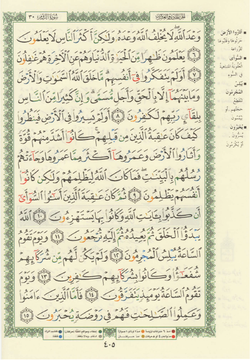 وَعْدَ ٱللَّهِ لَا يُخْلِفُ ٱللَّهُ وَعْدَهُۥ وَلَٰكِنَّ أَكْثَرَ ٱلنَّاسِ لَا يَعْلَمُونَ
٦ يَعْلَمُونَ ظَٰهِرًا مِّنَ ٱلْحَيَوٰةِ ٱلدُّنْيَا وَهُمْ عَنِ ٱلْءَاخِرَةِ هُمْ غَٰفِلُونَ
٧ أَوَلَمْ يَتَفَكَّرُوا۟ فِىٓ أَنفُسِهِم مَّا خَلَقَ ٱللَّهُ ٱلسَّمَٰوَٰتِ وَٱلْأَرْضَ
وَمَا بَيْنَهُمَآ إِلَّا بِٱلْحَقِّ وَأَجَلٍ مُّسَمًّى وَإِنَّ كَثِيرًا مِّنَ ٱلنَّاسِ
بِلِقَآئِ رَبِّهِمْ لَكَٰفِرُونَ ٨ أَوَلَمْ يَسِيرُوا۟ فِى ٱلْأَرْضِ فَيَنظُرُوا۟
كَيْفَ كَانَ عَٰقِبَةُ ٱلَّذِينَ مِن قَبْلِهِمْ كَانُوٓا۟ أَشَدَّ مِنْهُمْ قُوَّةً
وَأَثَارُوا۟ ٱلْأَرْضَ وَعَمَرُوهَآ أَكْثَرَ مِمَّا عَمَرُوهَا وَجَآءَتْهُمْ
رُسُلُهُم بِٱلْبَيِّنَٰتِ فَمَا كَانَ ٱللَّهُ لِيَظْلِمَهُمْ وَلَٰكِن كَانُوٓا۟
أَنفُسَهُمْ يَظْلِمُونَ ٩ ثُمَّ كَانَ عَٰقِبَةَ ٱلَّذِينَ أَسَٰٓـُٔوا۟ ٱلسُّوٓأَىٰٓ
أَن كَذَّبُوا۟ بِـَٔايَٰتِ ٱللَّهِ وَكَانُوا۟ بِهَا يَسْتَهْزِءُونَ ١٠ ٱللَّهُ
يَبْدَؤُا۟ ٱلْخَلْقَ ثُمَّ يُعِيدُهُۥ ثُمَّ إِلَيْهِ تُرْجَعُونَ ١١ وَيَوْمَ تَقُومُ
ٱلسَّاعَةُ يُبْلِسُ ٱلْمُجْرِمُونَ ١٢ وَلَمْ يَكُن لَّهُم مِّن شُرَكَآئِهِمْ
شُفَعَٰٓؤُا۟ وَكَانُوا۟ بِشُرَكَآئِهِمْ كَٰفِرِينَ ١٣ وَيَوْمَ
تَقُومُ ٱلسَّاعَةُ يَوْمَئِذٍ يَتَفَرَّقُونَ ١٤ فَأَمَّا ٱلَّذِينَ ءَامَنُوا۟
وَعَمِلُوا۟ ٱلصَّٰلِحَٰتِ فَهُمْ فِى رَوْضَةٍ يُحْبَرُونَ ١٥
٤٠٥